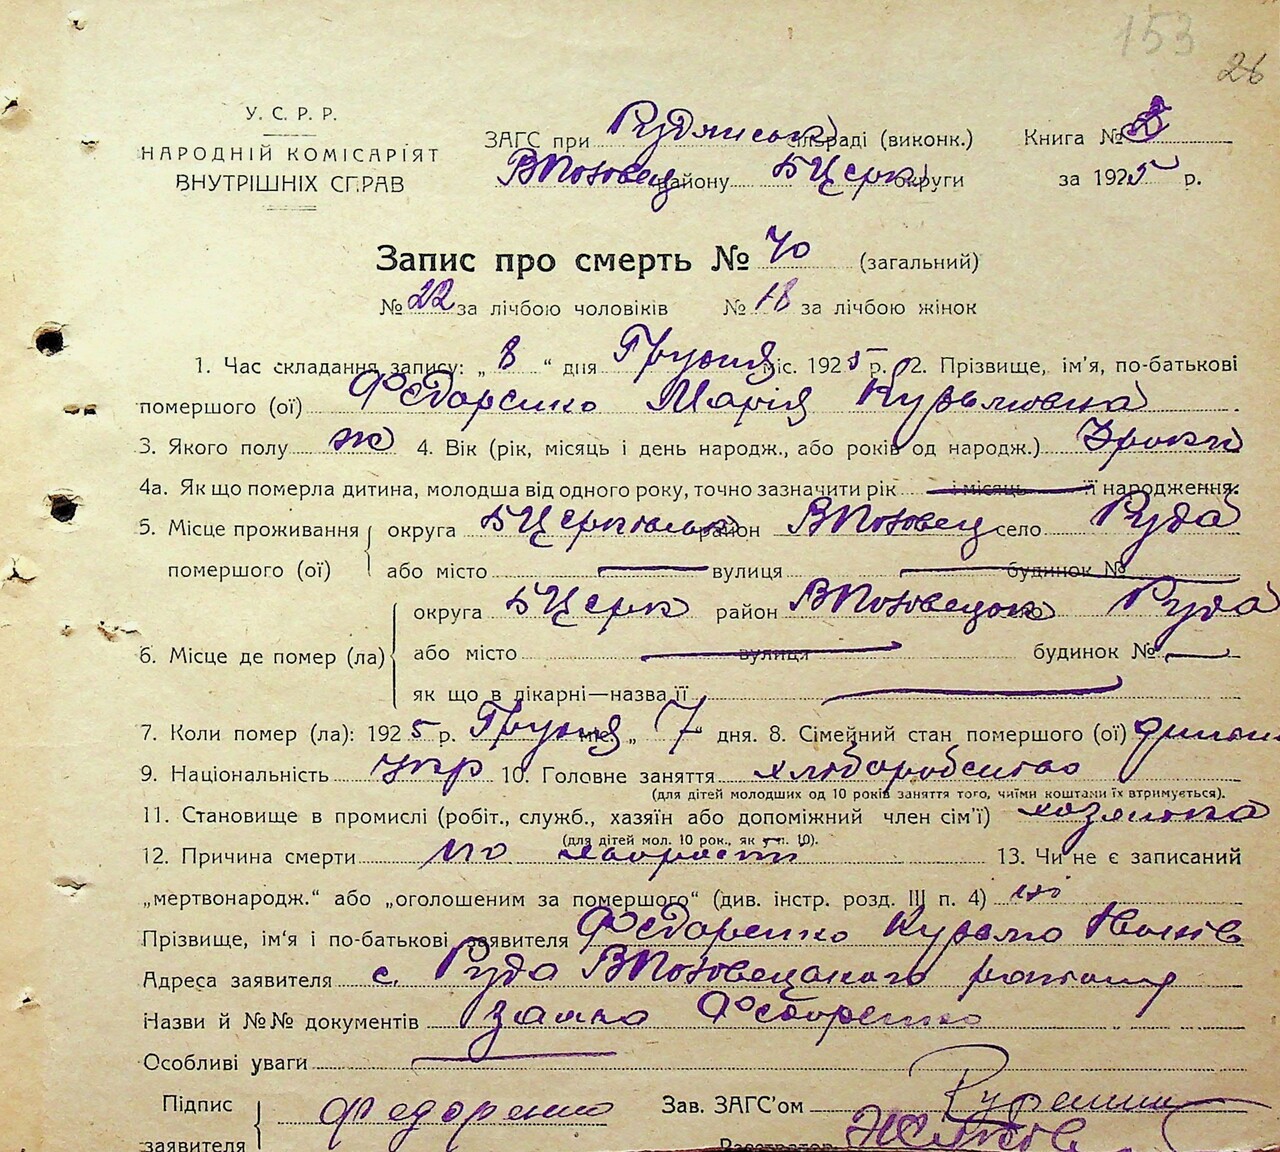 153
26
У. С. Р. Р.
НАРОДНІЙ КОМІСАРІЯТ
ВНУТРІШНІХ СПРАВ
ЗАГС при Рудянськ сільраді (виконк.)
району БЦерк округи
Книга №
за 1925 р.
Запис про смерть № 40 (загальний)
№ 22 за лічбою чоловіків № 18 за лічбою жінок
1. Час складання запису: „ 8 “ дня Грудня міс. 1925 р. 2. Прізвище, ім'я, по-батькові
помершого (ої) Федоренко Марія Кузьмовна
3. Якого полу ж 4. Вік (рік, місяць і день народж., або років од народж.) 3 роки
4а. Як що померла дитина, молодша від одного року, точно зазначити рік і місяць її народження.
5. Місце проживання округа БЦерківська район село Руда
помершого (ої) або місто вулиця будинок №
6. Місце де помер (ла) округа БЦерк район Руда
або місто вулиця будинок №
як що в лікарні—назва її
7. Коли помер (ла): 1925 р. Грудня міс. „ 7 дня. 8. Сімейний стан помершого (ої)
9. Національність укр 10. Головне заняття хлібаробство
(для дітей молодших од 10 років заняття того, чиїми коштами їх втримується).
11. Становище в промислі (робіт., служб., хазяїн або допоміжний член сім'ї)
(для дітей мол. 10 рок., як в п. 10).
12. Причина смерти по 13. Чи не є записаний
„мертвонародж.“ або „оголошеним за помершого“ (див. інстр. розд. III п. 4) ні
Прізвище, ім'я і по-батькові заявителя Федоренко Кузьма
Адреса заявителя с. Руда
Назви й №№ документів Заява Федоренко
Особливі уваги
Підпис
заявителя Федоренко
Зав. ЗАГС'ом
Реєстратор